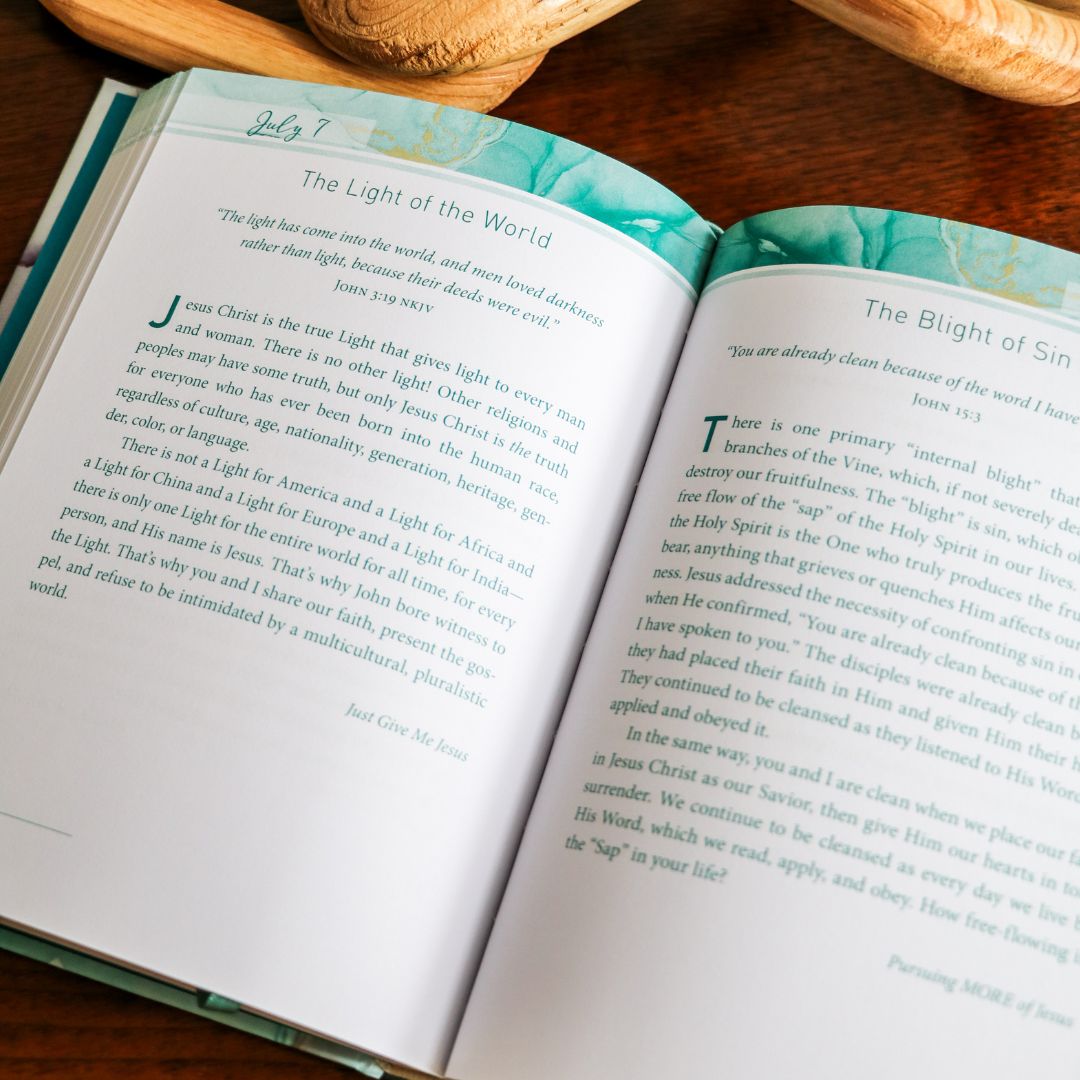 July 7
The Light of the World
“The light has come into the world, and men loved darkness
rather than light, because their deeds were evil.”
John 3:19 NKJV
Jesus Christ is the true Light that gives light to every man
and woman. There is no other light! Other religions and
peoples may have some truth, but only Jesus Christ is the truth
for everyone who has ever been born into the human race,
regardless of culture, age, nationality, generation, heritage, gen-
der, color, or language.
There is not a Light for America and a Light for Africa and
a Light for China and a Light for Europe and a Light for India—
there is only one Light for the entire world for all time, for every
person, and His name is Jesus. That’s why John bore witness to
the Light. That’s why you and I share our faith, present the gos-
pel, and refuse to be intimidated by a multicultural, pluralistic
world.
Just Give Me Jesus
The Blight of Sin
“You are already clean because of the word I have
John 15:3
There is one primary “internal blight” that
branches of the Vine, which, if not severely
destroy our fruitfulness. The “blight” is sin, which
free flow of the “sap” of the Holy Spirit in our lives.
the Holy Spirit is the One who truly produces the
bear, anything that grieves or quenches Him affects our
ness. Jesus addressed the necessity of confronting sin in
when He confirmed, “You are already clean because of
I have spoken to you.” The disciples were already clean
they had placed their faith in Him and given Him their
They continued to be cleansed as they listened to His Word
applied and obeyed it.
In the same way, you and I are clean when we place our
in Jesus Christ as our Savior, then give Him our hearts in
surrender. We continue to be cleansed as every day we live
His Word, which we read, apply, and obey. How free-flowing
the “Sap” in your life?
Pursuing MORE of Jesus